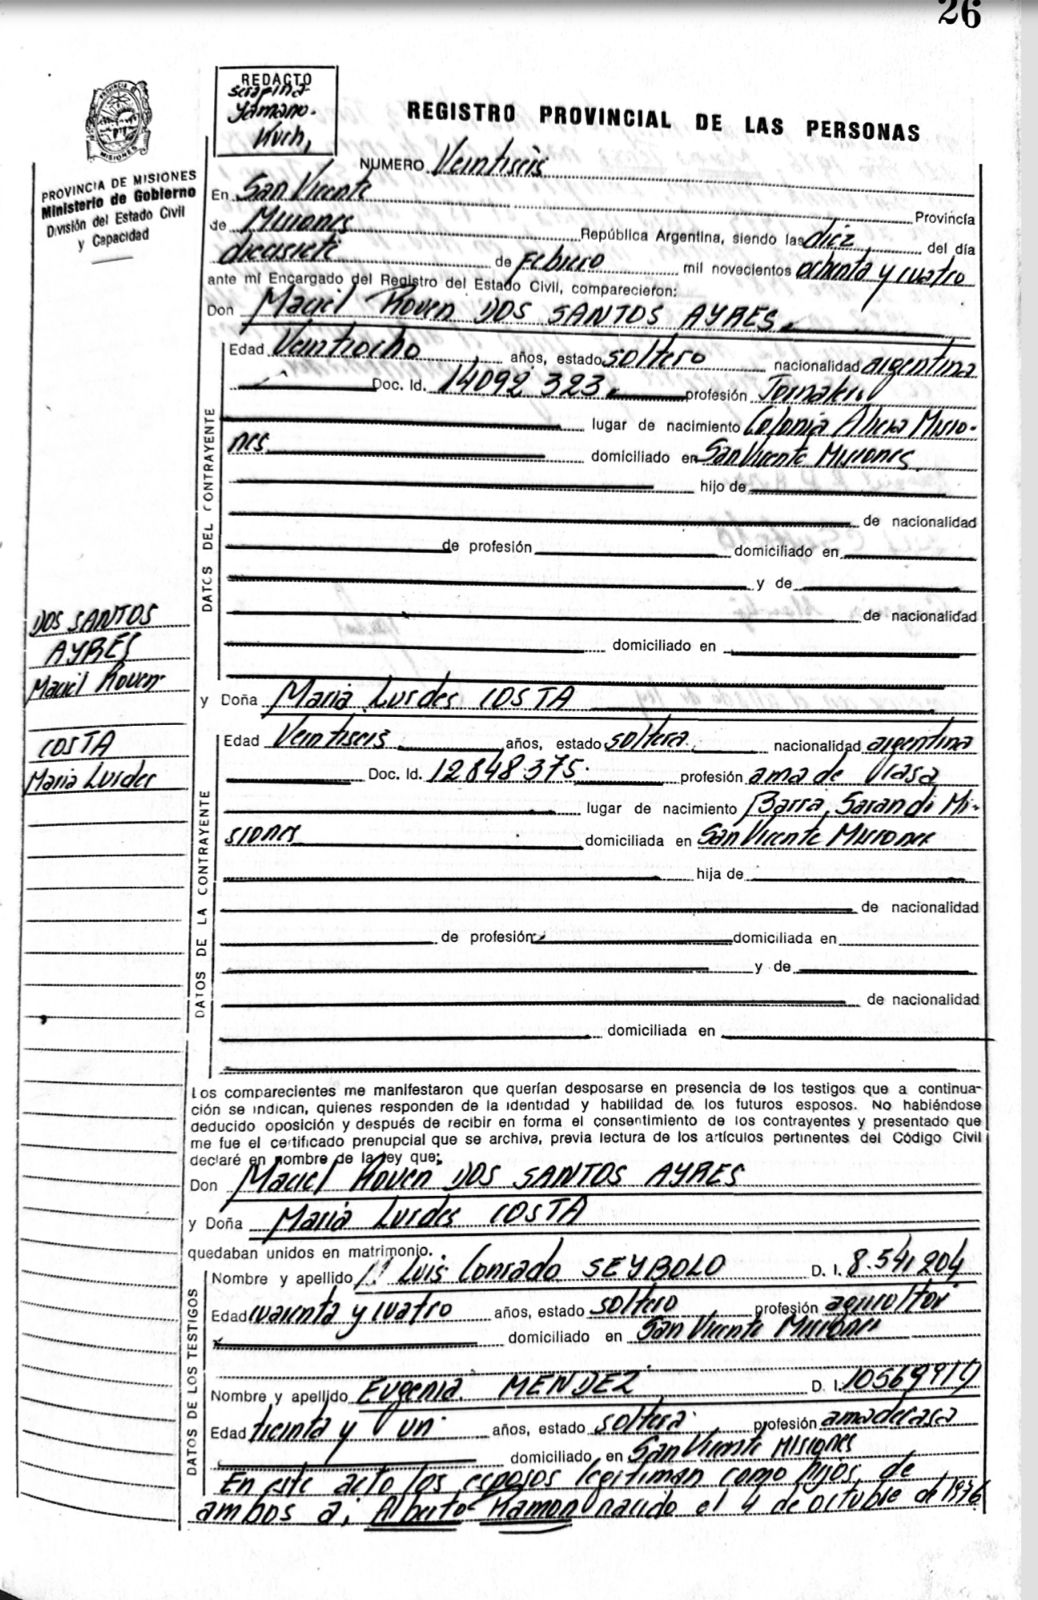 26
REDACTO
Yamano.
REGISTRO PROVINCIAL DE LAS PERSONAS
PROVINCIA DE MISIONES
Ministerio de Gobierno
División del Estado Civil
y Capacidad
NUMERO Veintiseis
En San Vicente Provincia
de Misiones República Argentina, siendo las diez del día
diecisiete de Febrero mil novecientos ochenta y cuatro
ante mí Encargado del Registro del Estado Civil, comparecieron:
Don Maciel Roven DOS SANTOS AYRES
DATOS DEL CONTRAYENTE
Edad Veintiocho años, estado soltero nacionalidad argentina
Doc. Id. 14092.323 profesión Jornalero
lugar de nacimiento Colonia Alicia Misio-
nes domiciliado en San Vicente Misiones
hijo de
de nacionalidad
de profesión domiciliado en
y de
de nacionalidad
domiciliado en
DOS SANTOS
AYRES
Maciel Roven
COSTA
Maria Lurdes
y Doña Maria Lurdes COSTA
DATOS DE LA CONTRAYENTE
Edad Veintiseis años, estado soltera nacionalidad argentina
Doc. Id. 12848.375 profesión ama de casa
lugar de nacimiento Barra Sarandi Mi-
siones domiciliada en San Vicente Misiones
hija de
de nacionalidad
de profesión domiciliada en
y de
de nacionalidad
domiciliada en
Los comparecientes me manifestaron que querían desposarse en presencia de los testigos que a continua-
ción se indican, quienes responden de la identidad y habilidad de los futuros esposos. No habiéndose
deducido oposición y después de recibir en forma el consentimiento de los contrayentes y presentado que
me fue el certificado prenupcial que se archiva, previa lectura de los artículos pertinentes del Código Civil
declaré en nombre de la ley que:
Don Maciel Roven DOS SANTOS AYRES
y Doña Maria Lurdes COSTA
quedaban unidos en matrimonio.
DATOS DE LOS TESTIGOS
Nombre y apellido Luis Conrado SEYBOLD D. I. 8.541.204
Edad cuarenta y cuatro años, estado soltero profesión agricultor
domiciliado en San Vicente Misiones
Nombre y apellido Eugenia MENDEZ D. I.
Edad treinta y un años, estado soltera profesión ama de casa
domiciliado en San Vicente Misiones
En este acto los esposos legitiman como hijos de
ambos a: Alberto Ramon nacido el 4 de octubre de 1976